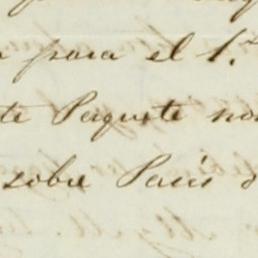 para el 1.º
te Paquete no
sobre Paris d